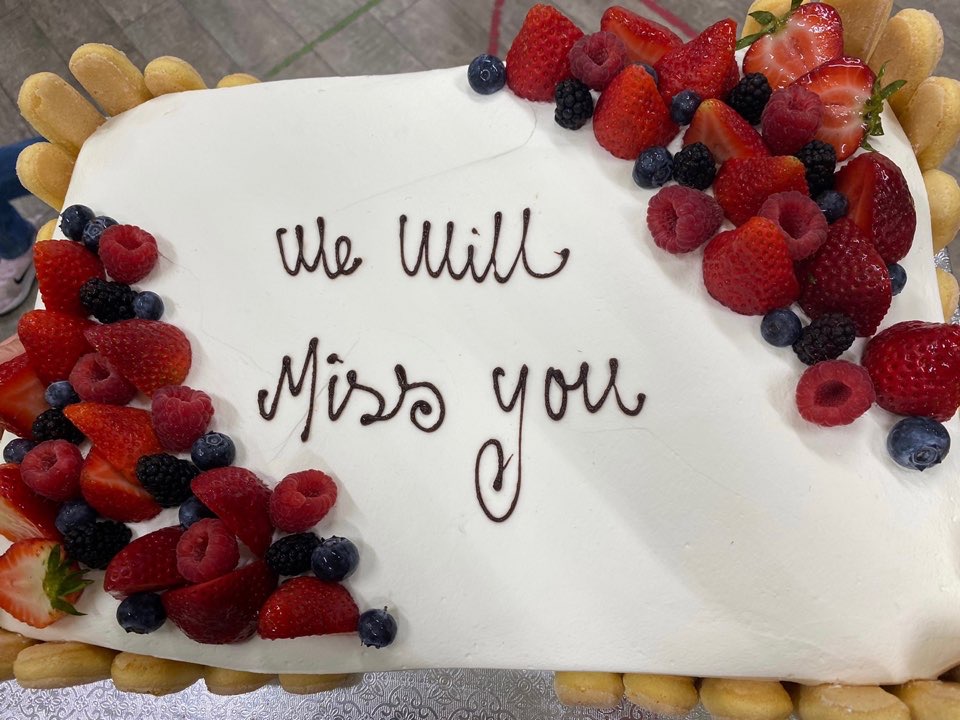 We Will
Miss you